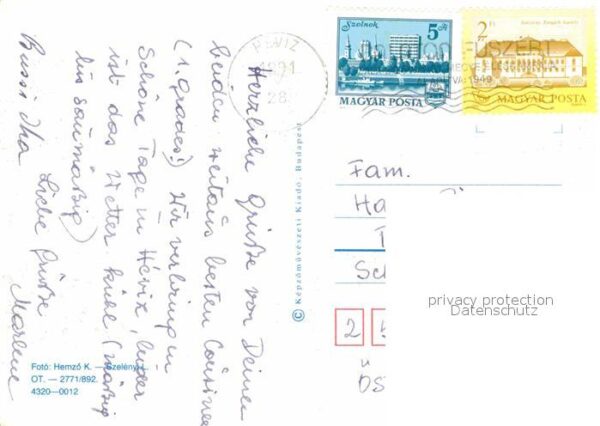 Herzliche Grüße von Deinen
beiden weitaus besten Cousinen
(1. Grades!) Wir verbringen
Schöne Tage in Hévíz, leider
ist das Wetter kühl (mäßig
bis saumäßig)
Liebe Grüße
Marlene
Bussi Ika
Foto: Hemző K. — Szelényi L.
OT. — 2771/892.
4320—0012
© Képzőművészeti Kiadó, Budapest
HEVIZ
1991
28
Szolnok
5 Ft
MAGYAR POSTA
2 Ft
MAGYAR POSTA
FÜSZERT
1949
Fam.
Ha
Sc
2 5
ÖS
privacy protection
Datenschutz